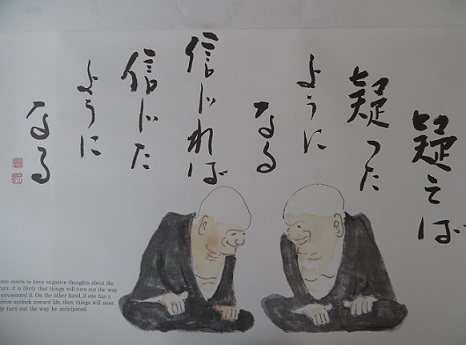 疑えば
疑った
ように
なる
信じれば
信じた
ように
なる
one starts to have negative thoughts about the
ture, it is likely that things will turn out the way
envisioned it. On the other hand, if one has a
itive outlook toward life, then things will most
ly turn out the way he anticipated.